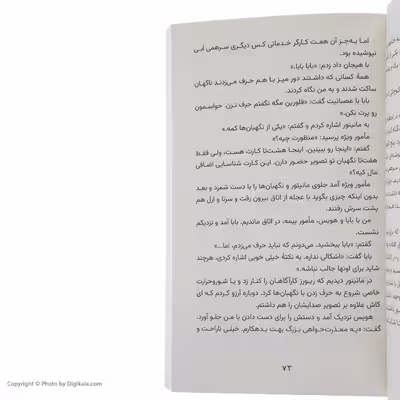 اما به‌جز آن هفت کارگر خدماتی کس دیگری سرهمی آبی
نپوشیده بود.
با هیجان داد زدم: «بابا بابا.»
همهٔ کسانی که داشتند دور میز با هم حرف می‌زدند ناگهان
ساکت شدند و به من نگاه کردند.
بابا با عصبانیت گفت: «فلورین مگه نگفتم حرف نزن. حواسمون
رو پرت نکن.»
به مانیتور اشاره کردم و گفتم: «یکی از نگهبان‌ها کمه.»
مأمور ویژه پرسید: «منظورت چیه؟»
گفتم: «اینجا رو ببینین. اینجا هشت‌تا کارت هست، ولی فقط
هفت‌تا نگهبان تو تصویر حضور دارن. این کارت شناسایی اضافی
مال کیه؟»
مأمور ویژه آمد جلوی مانیتور و نگهبان‌ها را با دست شمرد و بعد
بدون اینکه چیزی بگوید با عجله از اتاق بیرون رفت و سرنا و ارل هم
پشت سرش رفتند.
من با بابا و هویس، مأمور بیمه، در اتاق ماندم. بابا آمد و نزدیکم
نشست.
گفتم: «بابا ببخشید. می‌دونم که نباید حرف می‌زدم، اما...»
بابا گفت: «اشکالی نداره. به نکتهٔ خیلی خوبی اشاره کردی، هرچند
شاید برای اونها جالب نباشه.»
در مانیتور دیدیم که ریورز کارآگاهان را کنار زد و با شوروحرارت
خاصی شروع به حرف زدن با نگهبان‌ها کرد. دوباره آرزو کردم که ای
کاش علاوه بر تصویر صدایشان را هم داشتیم.
هویس نزدیک آمد و دستش را برای دست دادن با من جلو آورد.
گفت: «یه معذرت‌خواهی بزرگ بهت بدهکارم. خیلی ناراحت و
۷۳
Copyright © Photo by Digikala.com